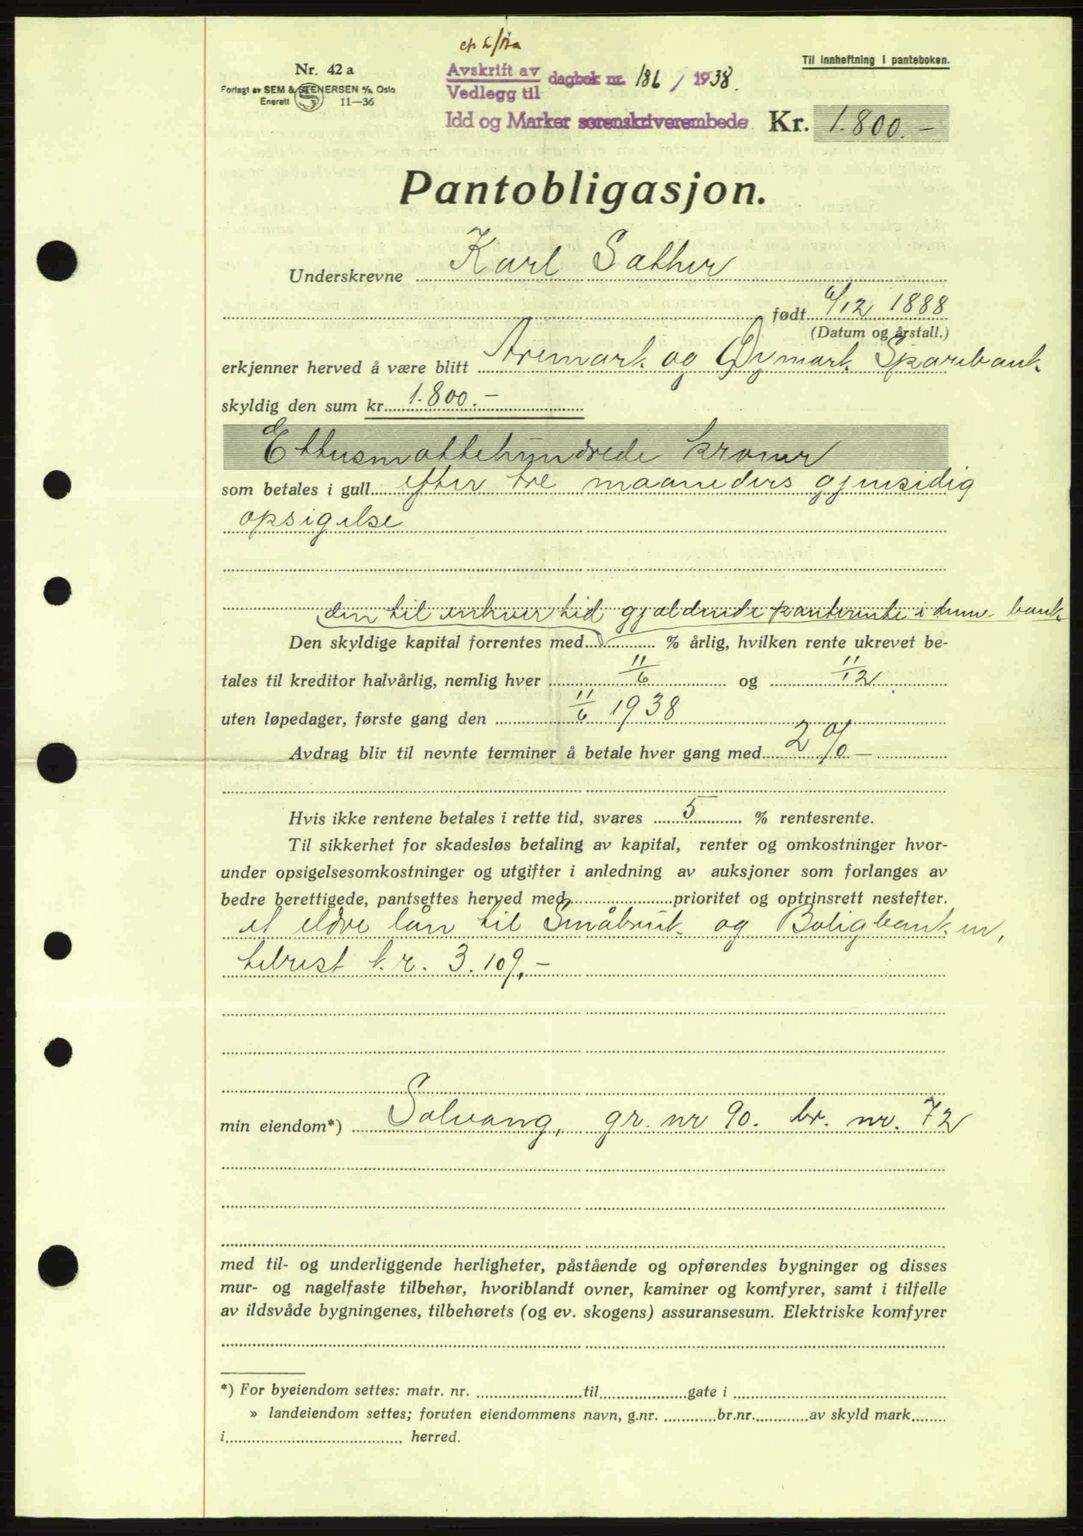 Til innheftning i panteboken.
Nr. 42 a
Forlagt av SEM & STENERSEN A/S, Oslo
Enerett 11—36
Avskrift av
Vedlegg til
dagbok nr. 186 / 1938.
Idd og Marker sorenskriverembede
Kr. 1.800.-
Pantobligasjon.
Underskrevne Karl Sæther
født 6/12 1888
(Datum og årstall.)
erkjenner herved å være blitt Aremark og Øymark Sparebank
skyldig den sum kr. 1.800.-
Ettusenottehundrede kroner
som betales i gull efter tre maaneders gjensidig
opsigelse
den til enhver tid gjældende panterente i denne bank
Den skyldige kapital forrentes med % årlig, hvilken rente ukrevet be-
tales til kreditor halvårlig, nemlig hver 11/6 og 11/12
uten løpedager, første gang den 11/6 1938
Avdrag blir til nevnte terminer å betale hver gang med 2 % —
Hvis ikke rentene betales i rette tid, svares 5 % rentesrente.
Til sikkerhet for skadesløs betaling av kapital, renter og omkostninger hvor-
under opsigelsesomkostninger og utgifter i anledning av auksjoner som forlanges av
bedre berettigede, pantsettes herved med prioritet og optrinsrett nestefter.
et eldre lån til Småbruk og Boligbanken,
tilrest kr. 3.109.-
min eiendom*) Solvang, gr. nr 90. br. nr. 72
med til- og underliggende herligheter, påstående og opførendes bygninger og disses
mur- og nagelfaste tilbehør, hvoriblandt ovner, kaminer og komfyrer, samt i tilfelle
av ildsvåde bygningenes, tilbehørets (og ev. skogens) assuransesum. Elektriske komfyrer
*) For byeiendom settes: matr. nr. til gate i
» landeiendom settes; foruten eiendommens navn, g.nr. br.nr. av skyld mark
i herred.